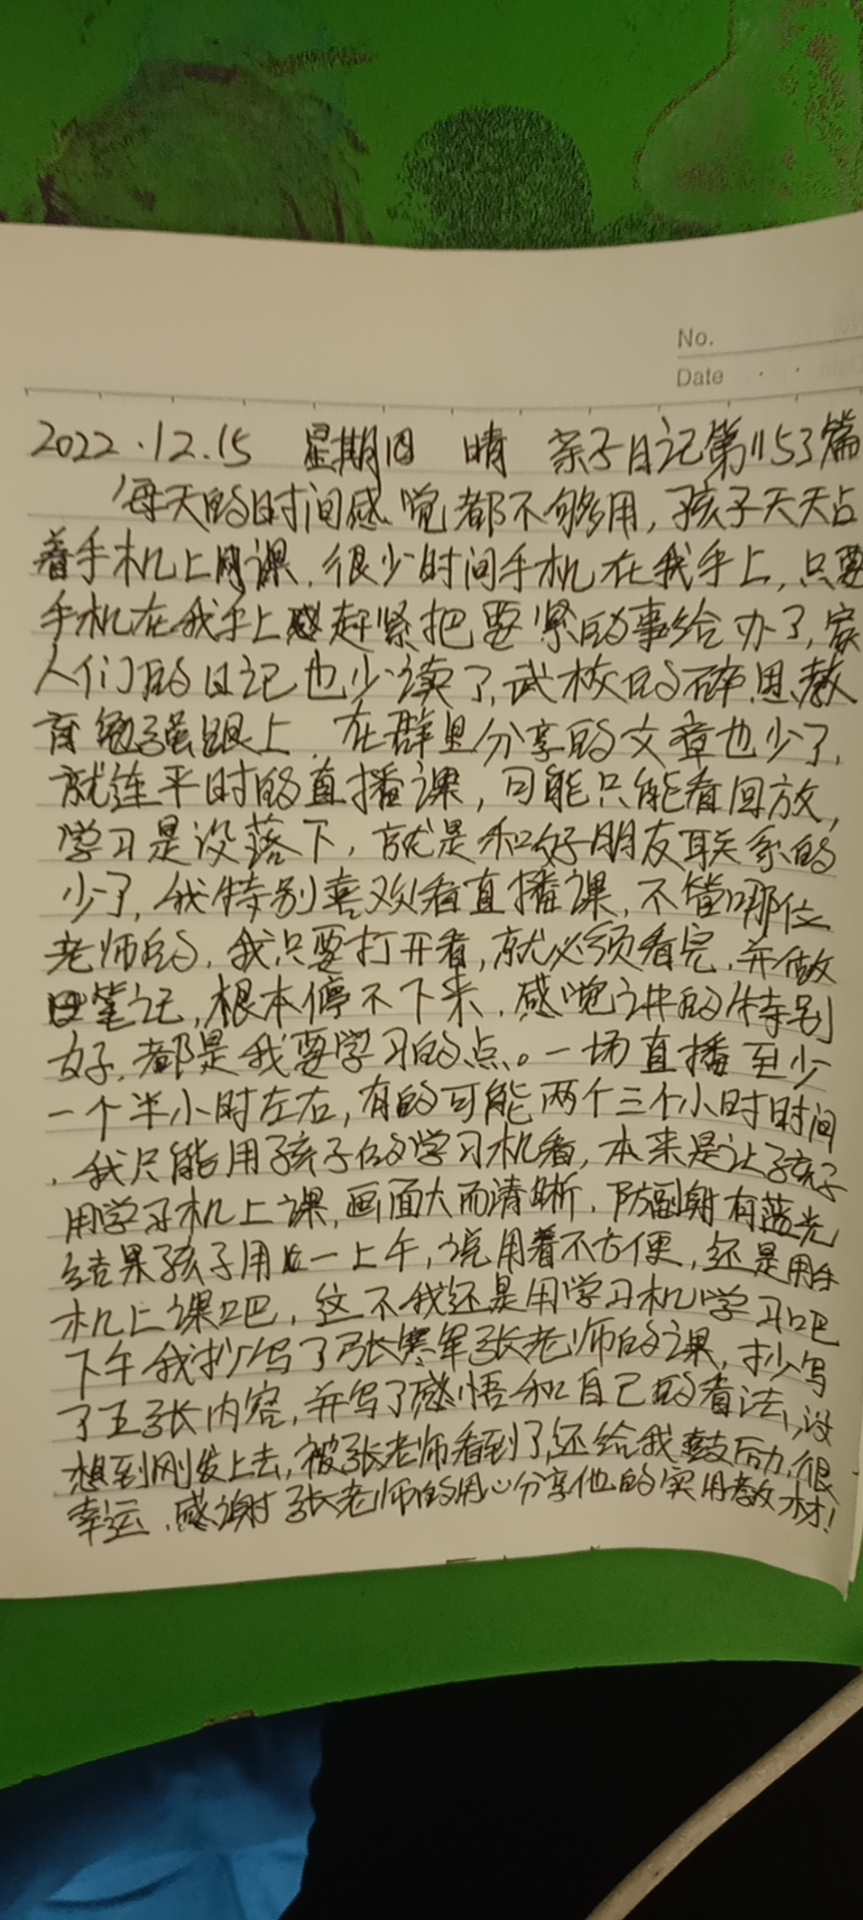 No.
Date
2022.12.15 星期四 晴 亲子日记第1153篇
每天的时间感觉都不够用,孩子天天占
着手机上网课,很少时间手机在我手上,只要
手机在我手上赶紧把要紧的事给办了,家
人们的日记也少读了,武校的碎思教
育勉强跟上,在群里分享的文章也少了,
就连平时的直播课,可能只能看回放,
学习是没落下,就是和好朋友联系的
少了,我特别喜欢看直播课,不管哪位
老师的,我只要打开看,就必须看完,并做
笔记,根本停不下来,感觉讲的特别
好,都是我要学习的点。一场直播至少
一个半小时左右,有的可能两个三个小时时间
,我只能用孩子的学习机看,本来是让孩子
用学习机上课,画面大而清晰,防副射有蓝光
结果孩子用一上午,说用着不方便,还是用手
机上课吧,这不我还是用学习机学习吧
下午我抄写了张寒军张老师的课,抄写
了五张内容,并写了感悟和自己的看法,没
想到刚发上去,被张老师看到了,还给我鼓励,很
幸运,感谢张老师的用心分享他的实用教材!